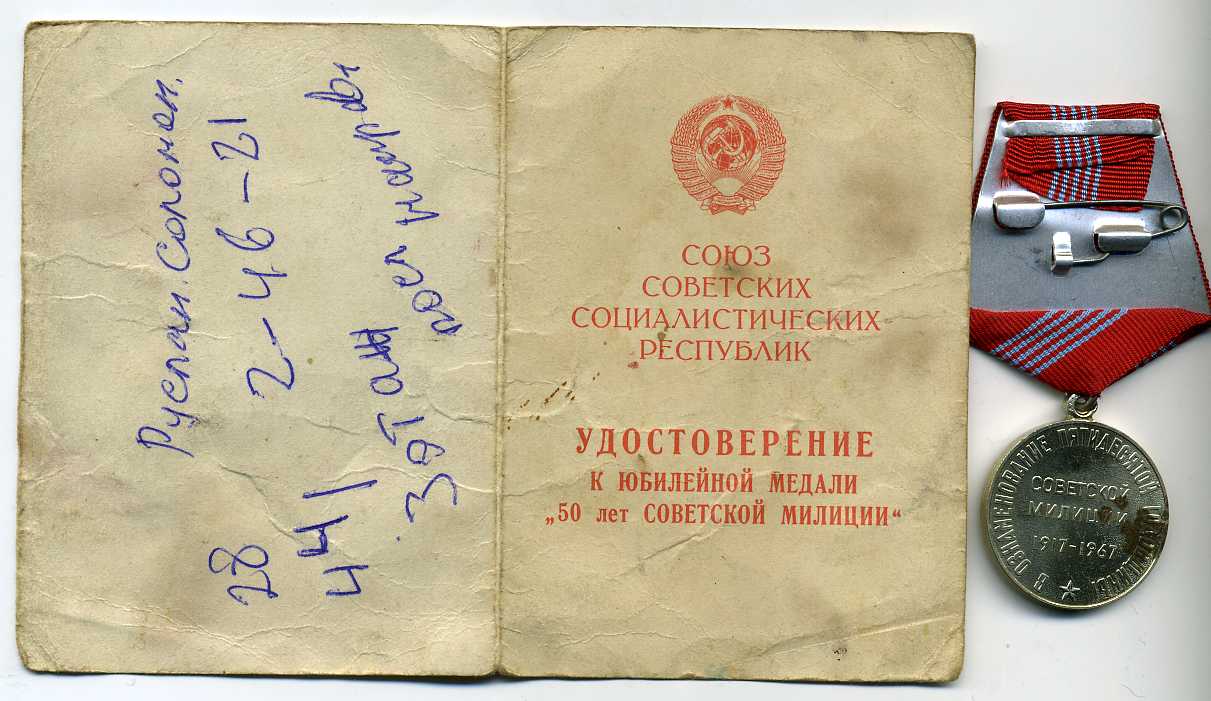 Руслан. Соронон.
2-46-21
28
441
.3эТаж
СОЮЗ
СОВЕТСКИХ
СОЦИАЛИСТИЧЕСКИХ
РЕСПУБЛИК
УДОСТОВЕРЕНИЕ
К ЮБИЛЕЙНОЙ МЕДАЛИ
„50 лет СОВЕТСКОЙ МИЛИЦИИ“
В ОЗНАМЕНОВАНИЕ ПЯТИДЕСЯТОЙ ГОДОВЩИНЫ
СОВЕТСКОЙ
МИЛИЦИИ
1917-1967